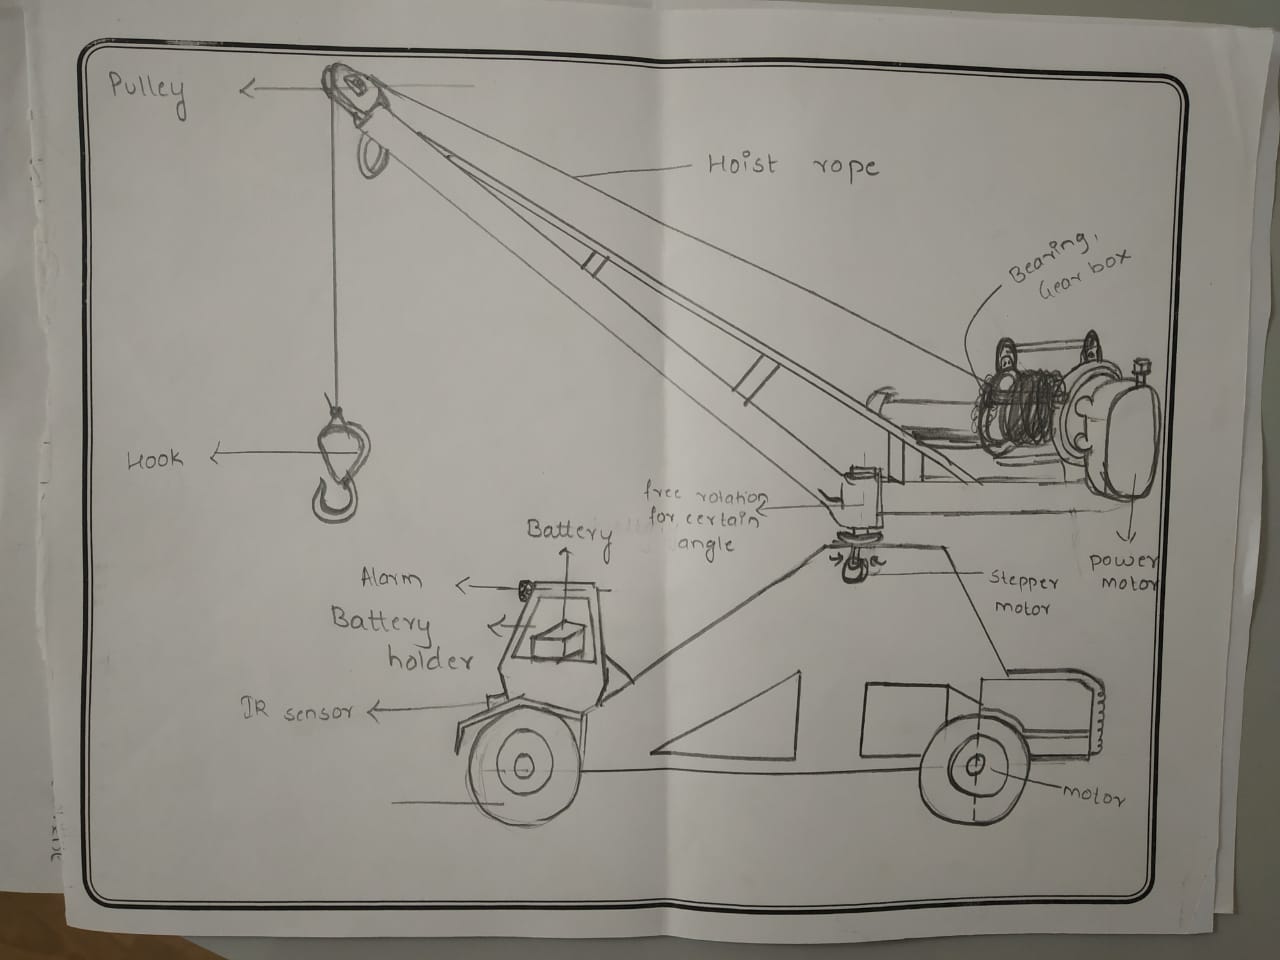 Pulley
Hoist rope
Bearing,
Gear box
Hook
free rotation
for certain
angle
Battery
power
motor
Alarm
Stepper
motor
Battery
holder
IR sensor
motor